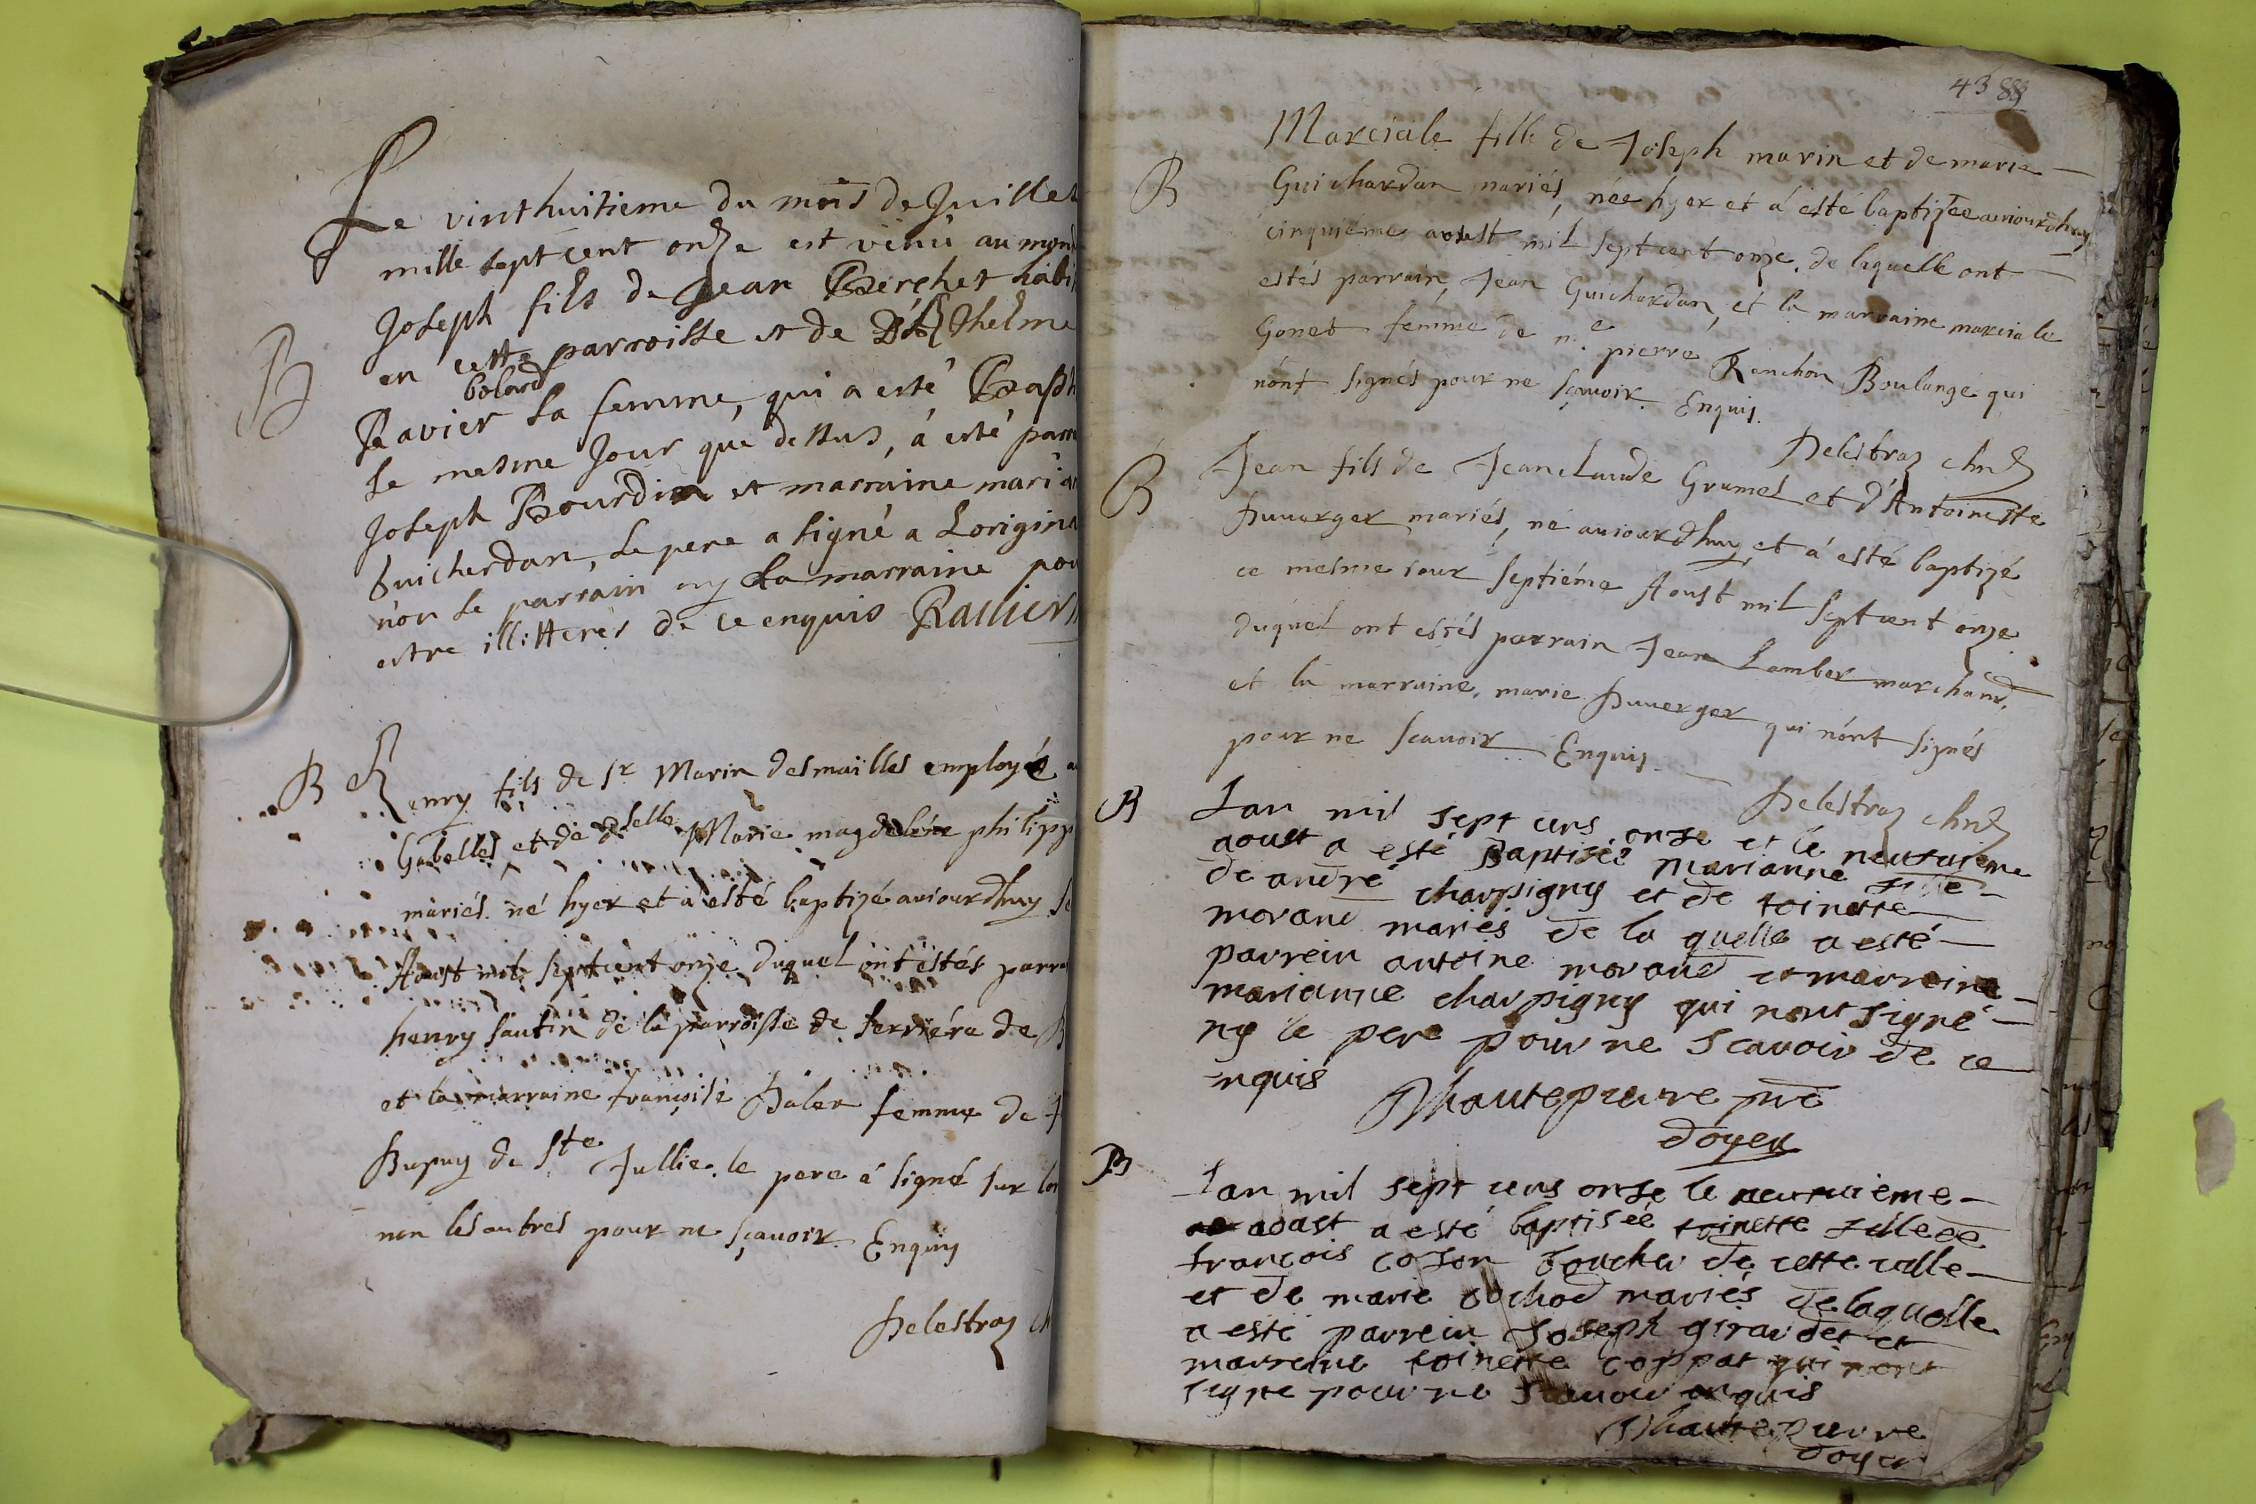 Le vinthuitieme du mois de Juillet
mille sept cent onze est venu au mond
Joseph fils de Jean Berchet habi
en cette parroisse et de Thelme
bolard
Ravier sa femme, qui a esté Bapt
le mesme Jour que dessus, á esté parr
Joseph Bourdin et marraine mari
Guicherdan, le pere a signé a Lorigina
non le parrain ny La marraine pou
estre illitterés de ce enquis Ravier
B
B
henry fils de Sr Marin desmailles employé a
Gabelles et de dselle Marie magdelene philipp
mariés. né hyer et a esté baptizé auiourdhuy Se
Aoust mil septcent onze duquel ont estés parra
henry Sautin de la parroisse de ferriére de
et la marraine françoise Daler femme de J
Dupuy de Ste Jullie. le pere á signé sur lor
non les autres pour ne sçauoir. Enquis
Delestraz ch
43 88
Marciale fille de Joseph marin et de marie
B
Guichardan mariés, née hyer et á esté baptizée auiourdhuy
cinquiéme aoust mil septcent onze. de laquelle ont
estés parrain, Jean Guichardan, et la marraine marciale
Gonet femme de me. pierre Ranchon Boulangé qui
nónt signés pour ne sçauoir. Enquis.
Delestraz chne
B
Jean fils de Jeanclaude Grumel et d'Antoinette
Duuerger mariés, né auiourdhuy et á esté baptizé
ce mesme iour septiéme Aoust mil septcent onze
duquel ont estés parrain Jean Lamber marchand,
et la marraine. marie Duuerger qui nónt signés
pour ne scauoir Enquis.
Delestraz chne
B
Lan mil sept cens onze et le neufuieme
aoust a esté Baptisée marianne fille
de andré charpigny et de toinette
morand mariés de la quelle a esté
parrein antoine morand et marreine
marianne charpigny qui nont signé
ny le pere pour ne scauoir de ce
enquis
Dhautepierre pre
doyen
B
Lan mil sept cens onze le neufuieme
aoast a esté baptisée toinette fille de
francois coson boucher de cette ville
et de marie bochod mariés de laquelle
a esté parrein Joseph girardet et
marreine toinette coppat qui nont
signe pour ne scauoir enquis
Dhautepierre
doyen